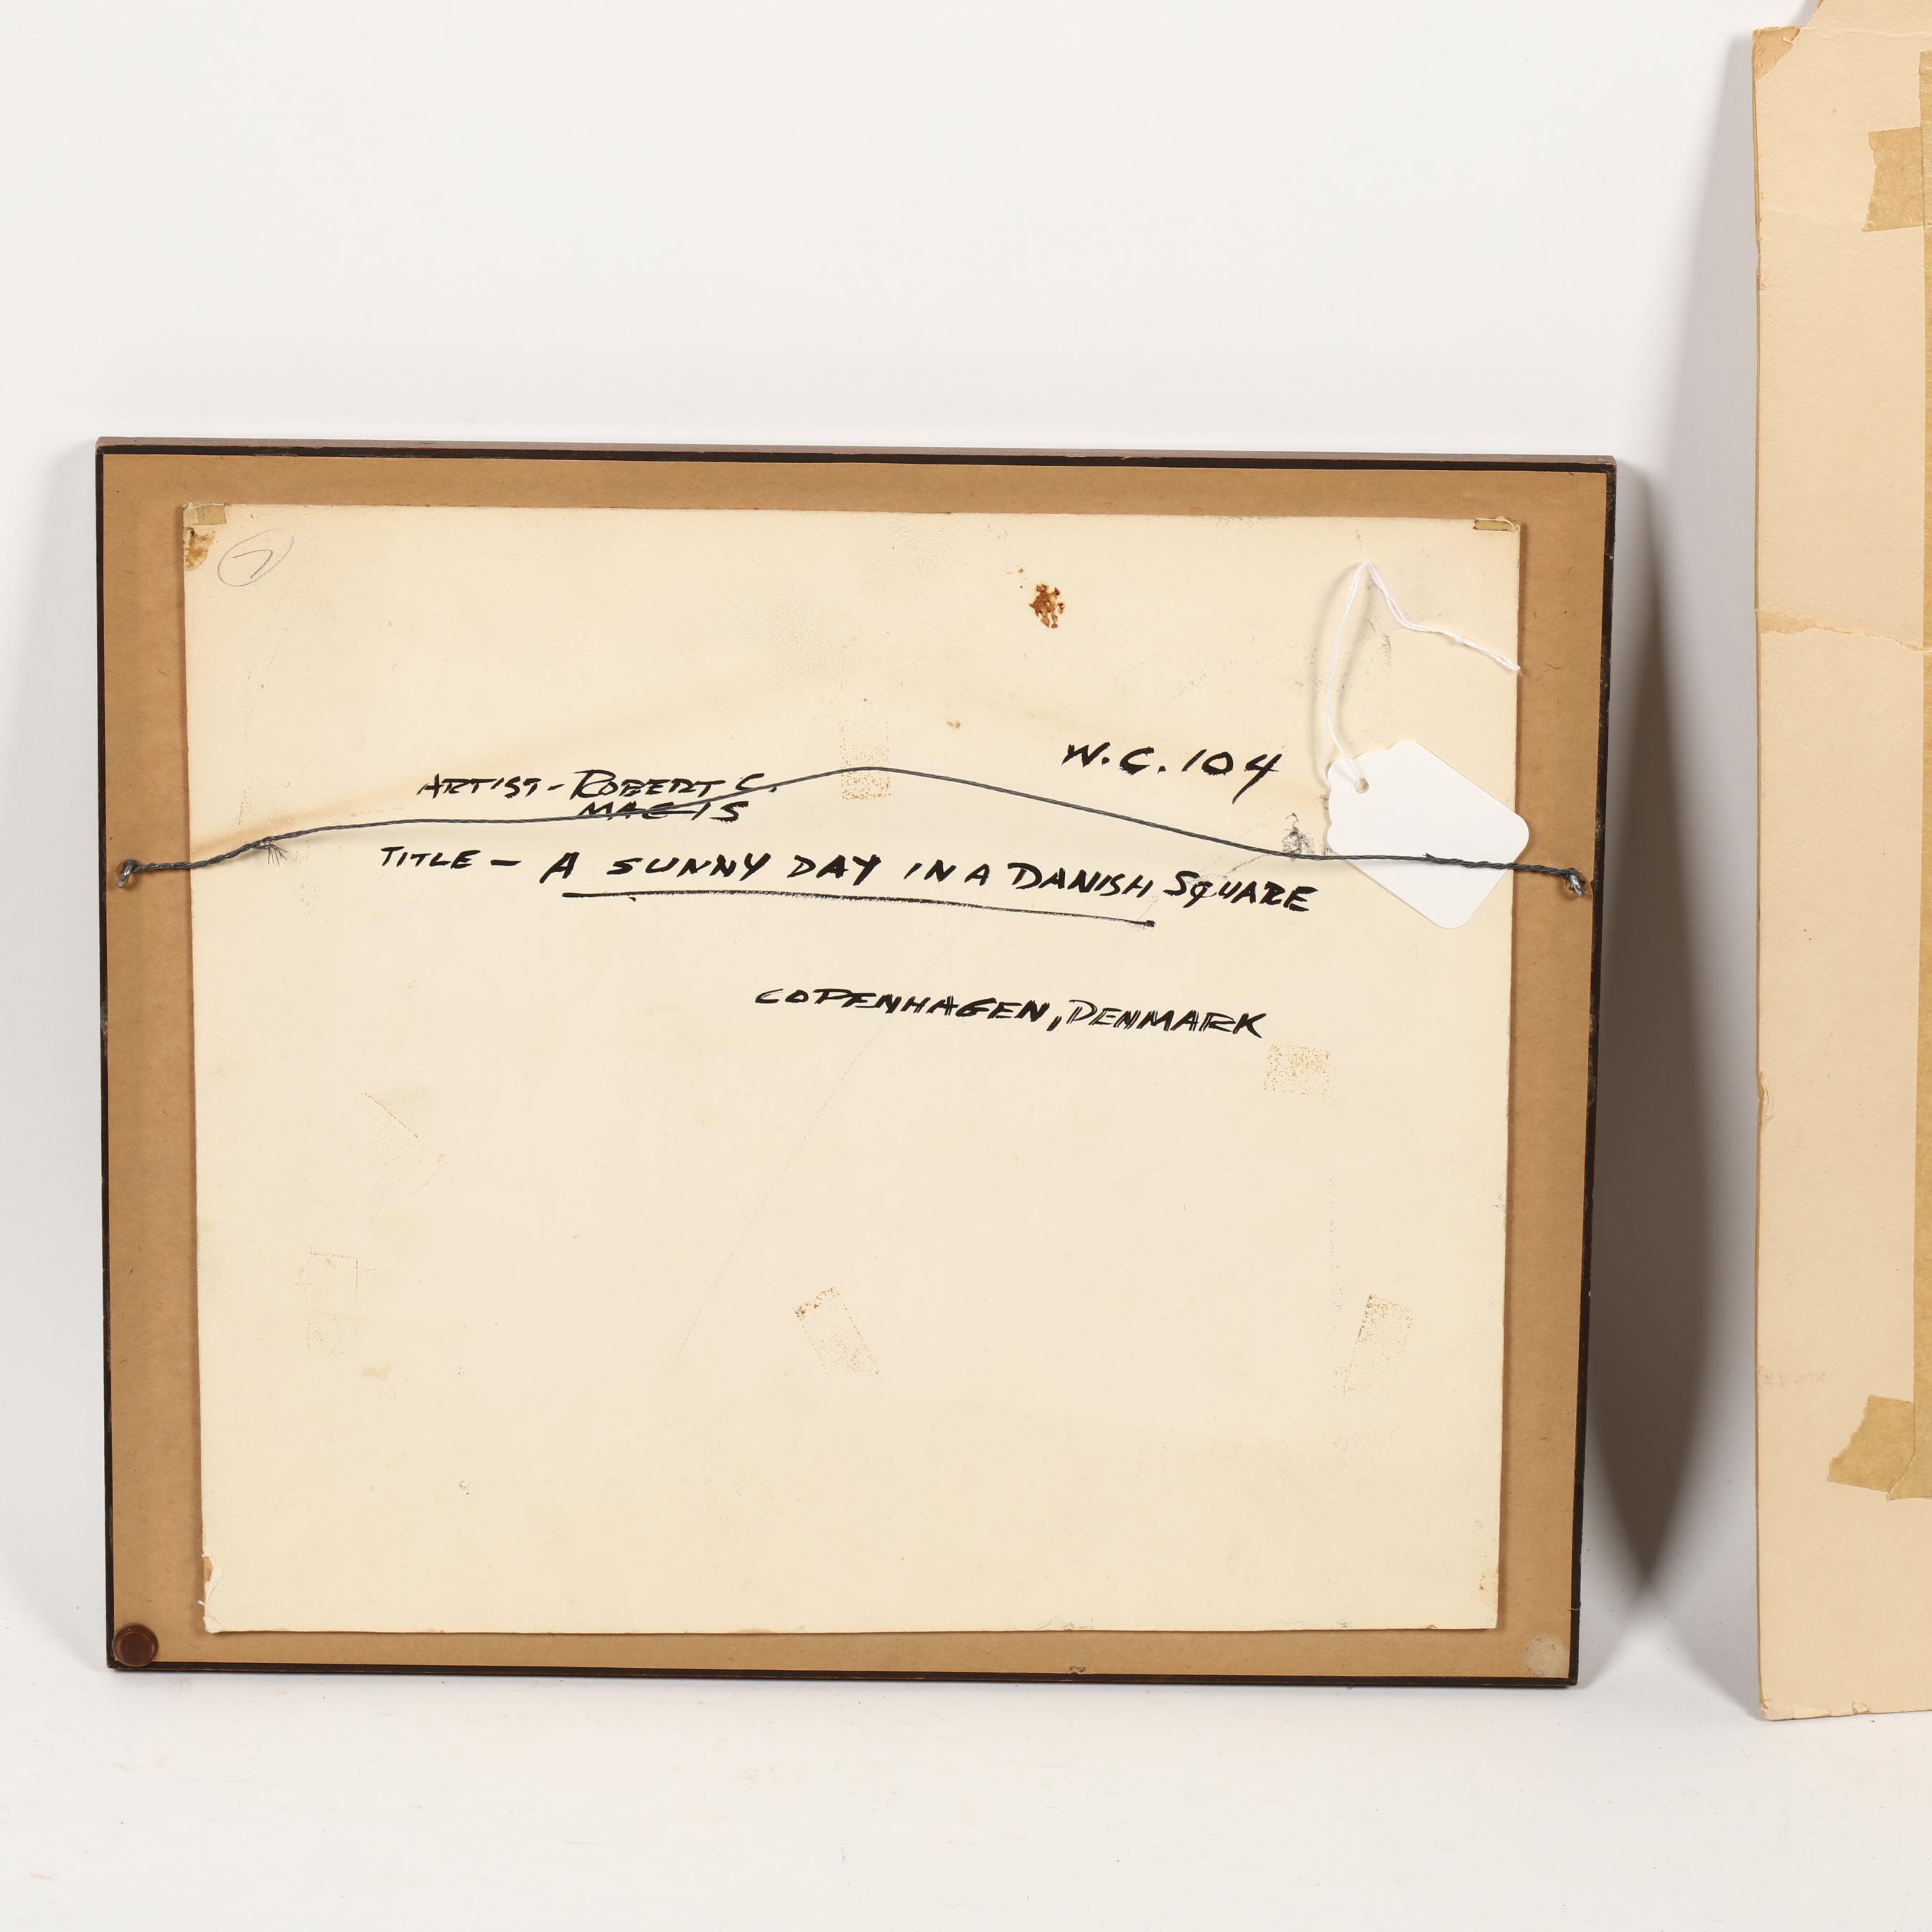 7
W.C. 104
ARTIST - ROBERT C.
MAGIS
TITLE - A SUNNY DAY IN A DANISH SQUARE
COPENHAGEN, DENMARK